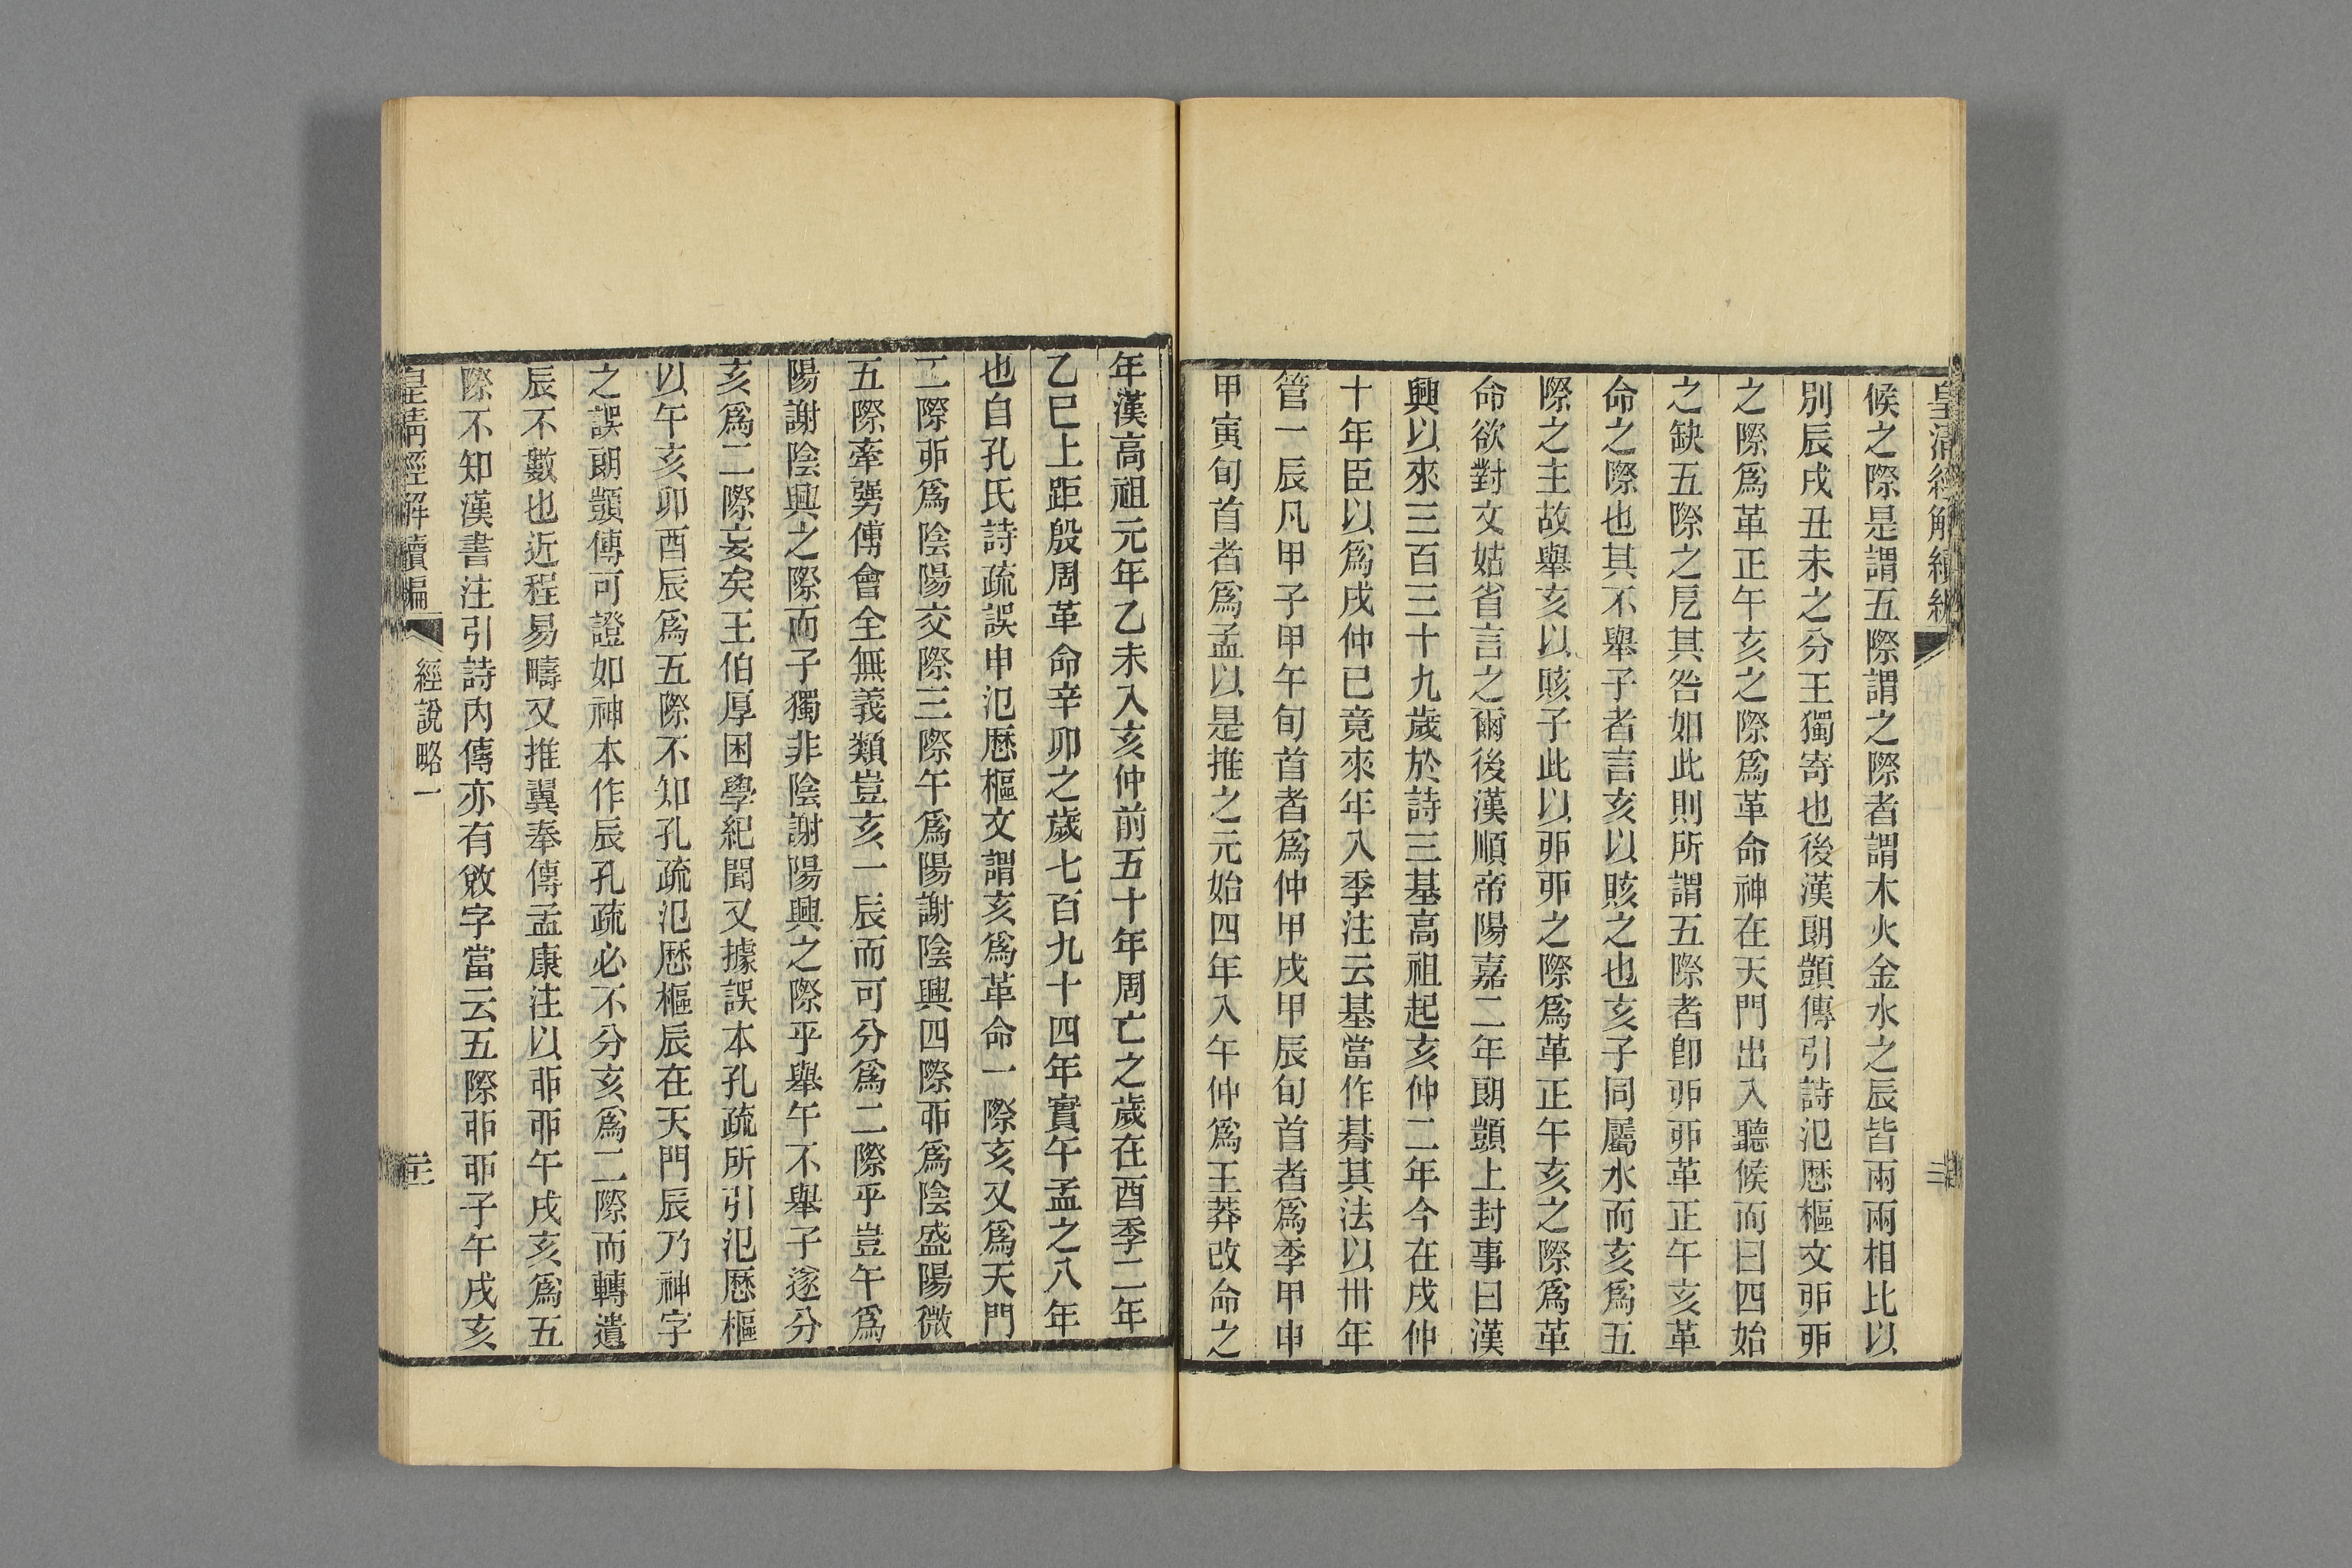 皇清經解續編
候之際是謂五際謂之際者謂木火金水之辰皆兩兩相比以
別辰戌丑未之分王獨寄也後漢郎顗傳引詩氾厯樞文丣丣
之際爲革正午亥之際爲革命神在天門出入聽候而曰四始
之缺五際之戹其咎如此則所謂五際者卽丣丣革正午亥革
命之際也其不舉子者言亥以賅之也亥子同屬水而亥爲五
際之主故舉亥以賅子此以丣丣之際爲革正午亥之際爲革
命欲對文姑省言之爾後漢順帝陽嘉二年郎顗上封事曰漢
興以來三百三十九歲於詩三基高祖起亥仲二年今在戌仲
十年臣以爲戌仲已竟來年入季注云基當作朞其法以卅年
管一辰凡甲子甲午旬首者爲仲甲戌甲辰旬首者爲季甲申
甲寅旬首者爲孟以是推之元始四年入午仲爲王莽改命之
年漢高祖元年乙未入亥仲前五十年周亡之歲在酉季二年
乙巳上距殷周革命辛卯之歲七百九十四年實午孟之八年
也自孔氏詩疏誤申氾厯樞文謂亥爲革命一際亥又爲天門
二際丣爲陰陽交際三際午爲陽謝陰興四際丣爲陰盛陽微
五際牽彊傅會全無義類豈亥一辰而可分爲二際乎豈午爲
陽謝陰興之際而子獨非陰謝陽興之際乎舉午不舉子遂分
亥爲二際妄矣王伯厚困學紀聞又據誤本孔疏所引氾厯樞
以午亥卯酉辰爲五際不知孔疏氾厯樞辰在天門辰乃神字
之誤郎顗傳可證如神本作辰孔疏必不分亥爲二際而轉遺
辰不數也近程易疇又推翼奉傳孟康注以丣丣午戌亥爲五
際不知漢書注引詩內傳亦有敓字當云五際丣丣子午戌亥
皇清經解續編
經說略一